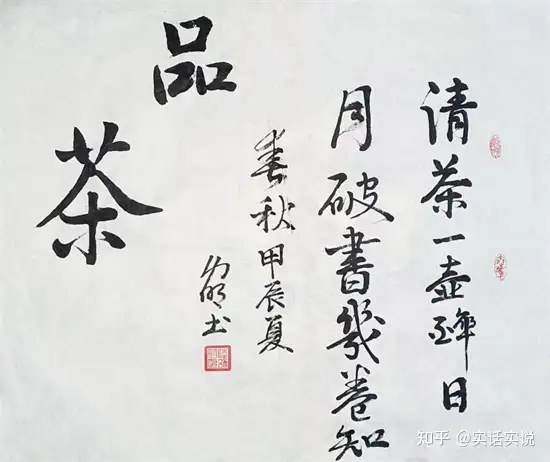 清茶一壶醉日
月破書幾卷知
春秋甲辰夏
品
茶
知乎 @实话实说